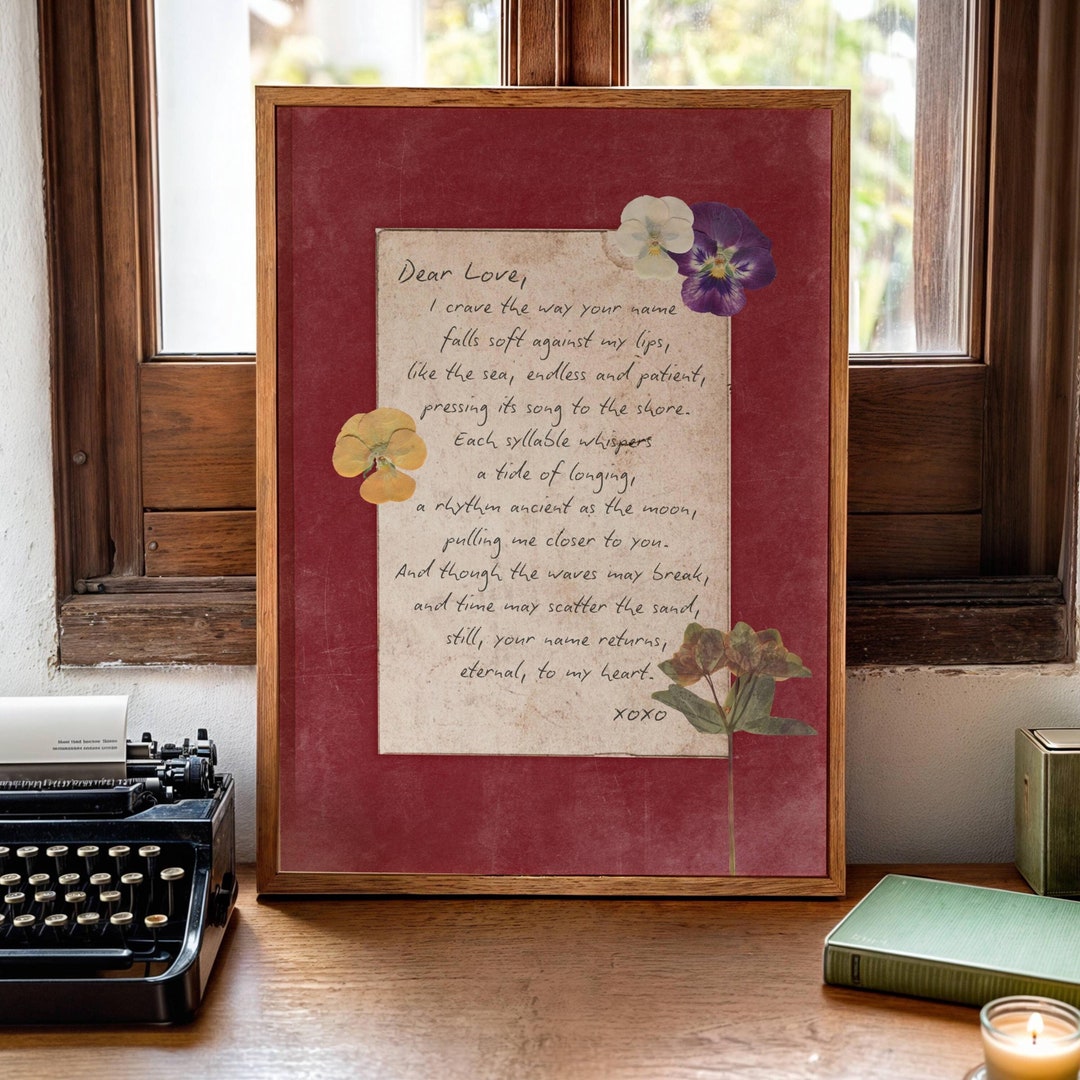 Dear Love,
I crave the way your name
falls soft against my lips,
like the sea, endless and patient,
pressing its song to the shore.
Each syllable whispers
a tide of longing,
a rhythm ancient as the moon,
pulling me closer to you.
And though the waves may break,
and time may scatter the sand,
still, your name returns,
eternal, to my heart.
xoxo